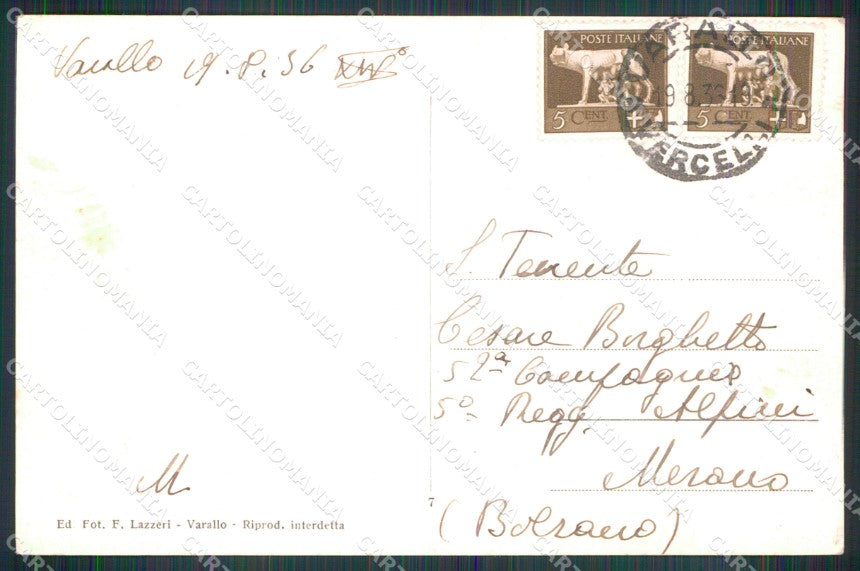 Varallo 19.8.36 XIV°
POSTE ITALIANE
5 CENT.
POSTE ITALIANE
5 CENT.
VARALLO
19.8.36
VERCELLI
S. Tenente
Cesare Borghetto
52ª Compagnia
5º Regg. Alpini
Merano
(Bolzano)
M
7
Ed. Fot. F. Lazzeri - Varallo - Riprod. interdetta
CARTOLINOMANIA